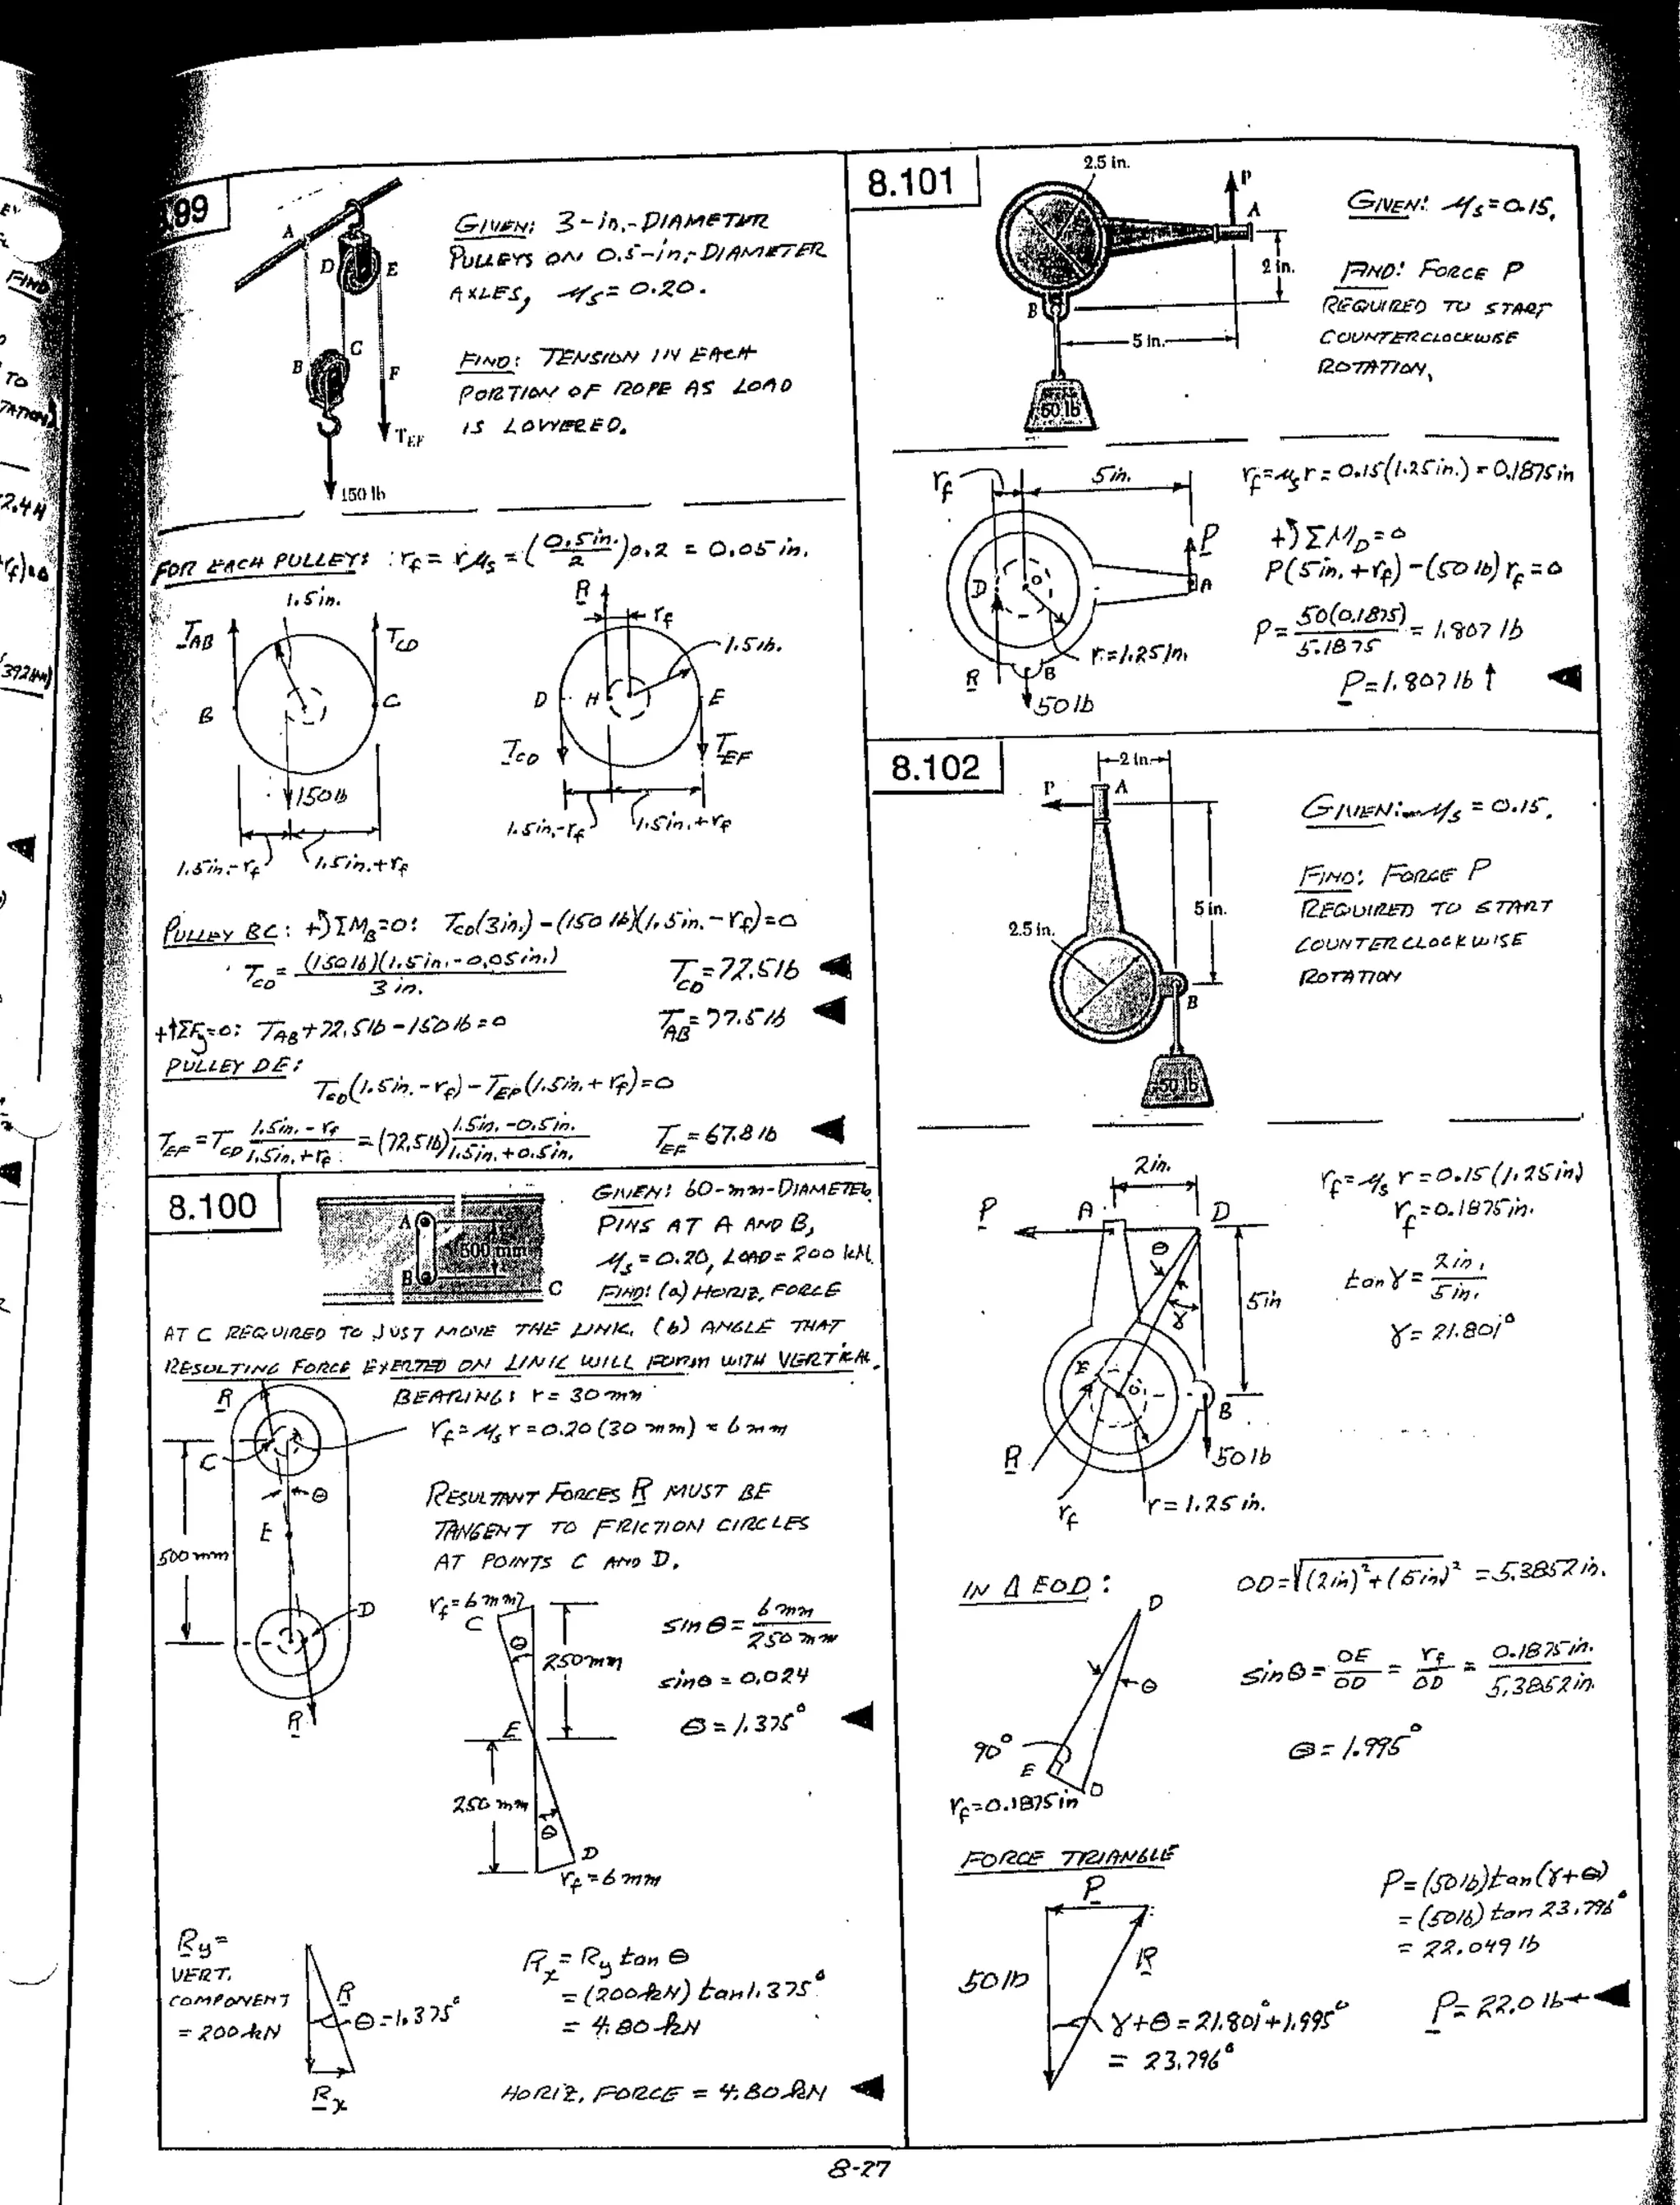 .99
A
D
E
B
C
F
T_EF
150 lb
GIVEN: 3-in.-DIAMETER
PULLEYS ON 0.5-in.-DIAMETER
AXLES, μs = 0.20.
FIND: TENSION IN EACH
PORTION OF ROPE AS LOAD
IS LOWERED.
FOR EACH PULLEY: : r_f = r μs = (0.5 in./2) 0.2 = 0.05 in.
1.5 in.
T_AB
T_CD
B
C
150 lb
1.5 in.-r_f
1.5 in.+r_f
R
r_f
1.5 in.
D
H
E
T_CD
T_EF
1.5 in.-r_f
1.5 in.+r_f
PULLEY BC: +↺ΣM_B=0: T_CD(3 in.) - (150 lb)(1.5 in. - r_f) = 0
T_CD = (150 lb)(1.5 in. - 0.05 in.) / 3 in.
T_CD = 72.5 lb
+↑ΣF_y=0: T_AB + 72.5 lb - 150 lb = 0
T_AB = 77.5 lb
PULLEY DE:
T_CD(1.5 in. - r_f) - T_EF(1.5 in. + r_f) = 0
T_EF = T_CD (1.5 in. - r_f)/(1.5 in. + r_f) = (72.5 lb) (1.5 in. - 0.5 in.)/(1.5 in. + 0.5 in.)
T_EF = 67.8 lb
8.100
A
500 mm
B
C
GIVEN: 60-mm-DIAMETER
PINS AT A AND B,
μs = 0.20, LOAD = 200 kN.
FIND: (a) HORIZ. FORCE
AT C REQUIRED TO JUST MOVE THE LINK. (b) ANGLE THAT
RESULTING FORCE EXERTED ON LINK WILL FORM WITH VERTICAL.
R
BEARING: r = 30 mm
r_f = μs r = 0.20 (30 mm) = 6 mm
C
θ
E
500 mm
D
R
RESULTANT FORCES R MUST BE
TANGENT TO FRICTION CIRCLES
AT POINTS C AND D.
r_f = 6 mm
C
θ
250 mm
E
250 mm
θ
D
r_f = 6 mm
sin θ = 6 mm / 250 mm
sin θ = 0.024
θ = 1.375°
R_y =
VERT.
COMPONENT
= 200 kN
R
θ = 1.375°
R_x
R_x = R_y tan θ
= (200 kN) tan 1.375°
= 4.80 kN
HORIZ. FORCE = 4.80 kN
8.101
2.5 in.
P
A
2 in.
B
5 in.
50 lb
GIVEN: μs = 0.15.
FIND: FORCE P
REQUIRED TO START
COUNTERCLOCKWISE
ROTATION.
r_f
5 in.
P
D
O
A
r = 1.25 in.
R
B
50 lb
r_f = μs r = 0.15 (1.25 in.) = 0.1875 in
+↺ΣM_D = 0
P(5 in. + r_f) - (50 lb) r_f = 0
P = 50(0.1875) / 5.1875 = 1.807 lb
P = 1.807 lb ↑
8.102
2 in.
P
A
5 in.
2.5 in.
B
50 lb
GIVEN: μs = 0.15.
FIND: FORCE P
REQUIRED TO START
COUNTERCLOCKWISE
ROTATION
2 in.
P
A
D
θ
γ
5 in
E
O
B
R
50 lb
r_f
r = 1.25 in.
r_f = μs r = 0.15 (1.25 in)
r_f = 0.1875 in.
tan γ = 2 in. / 5 in.
γ = 21.801°
IN Δ EOD:
OD = √((2 in)² + (5 in)²) = 5.3852 in.
D
θ
90°
E
O
r_f = 0.1875 in
sin θ = OE/OD = r_f/OD = 0.1875 in. / 5.3852 in.
θ = 1.995°
FORCE TRIANGLE
P
50 lb
R
γ + θ = 21.801° + 1.995°
= 23.796°
P = (50 lb) tan (γ + θ)
= (50 lb) tan 23.796°
= 22.049 lb
P = 22.0 lb ←
8-27